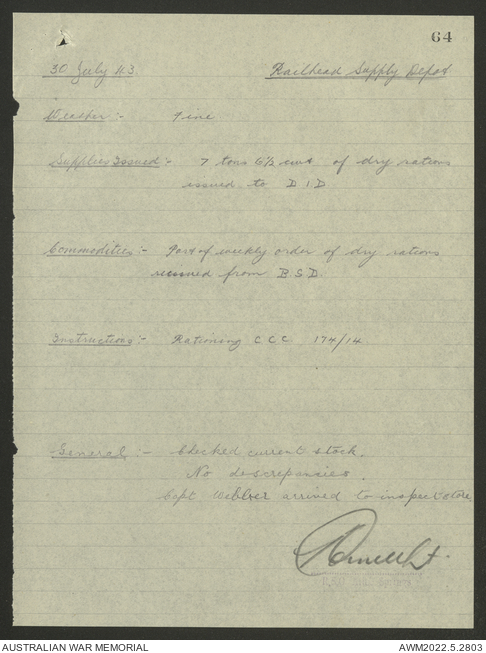 64
30 July 43. Railhead Supply Depot
Weather :- Fine
Supplies Issued :- 7 tons 6½ cwt of dry rations
issued to D I D
Commodities :- Part of weekly order of dry rations
received from B.S.D.
Instructions :- Rationing C C C 174/14.
General :- Checked current stock.
No descrepencies.
Capt Webber arrived to inspect store
AUSTRALIAN WAR MEMORIAL AWM2022.5.2803